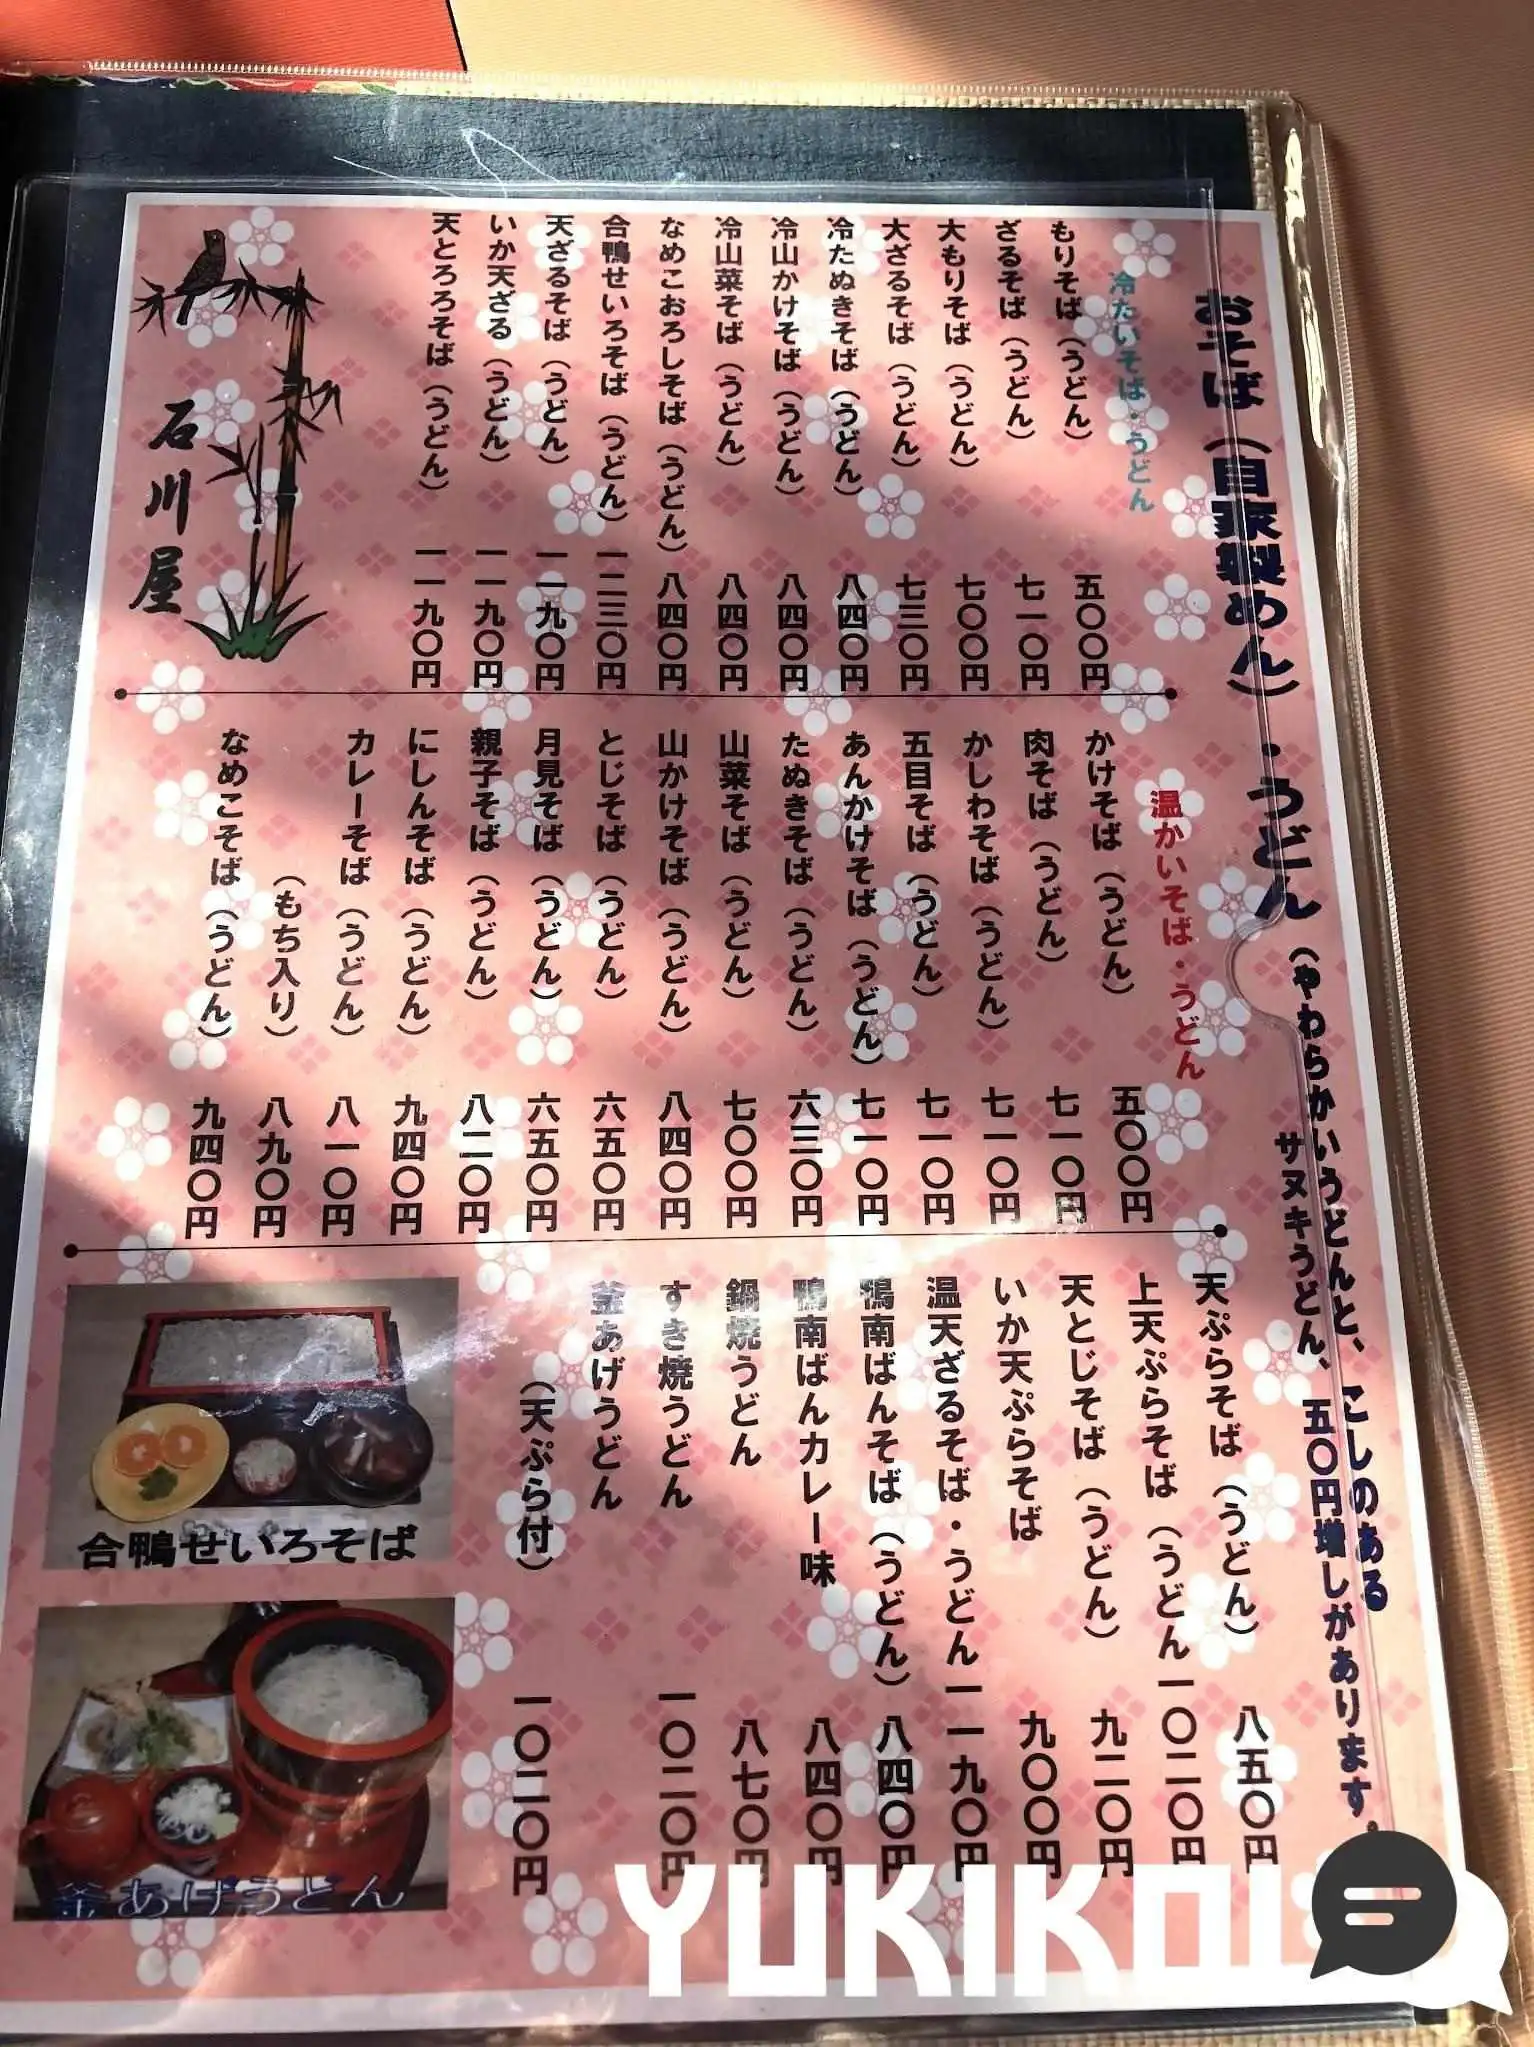 おそば（自家製めん）・うどん（やわらかいうどんと、こしのある
サヌキうどん、五〇円増しがあります。
冷たいそば・うどん
もりそば（うどん） 五〇〇円
ざるそば（うどん） 七一〇円
大もりそば（うどん） 七〇〇円
大ざるそば（うどん） 七三〇円
冷たぬきそば（うどん） 八四〇円
冷山かけそば（うどん） 八四〇円
冷山菜そば（うどん） 八四〇円
なめこおろしそば（うどん） 八四〇円
合鴨せいろそば（うどん） 一二三〇円
天ざるそば（うどん） 一一九〇円
いか天ざる（うどん） 一一九〇円
天とろろそば（うどん） 一一九〇円
石川屋
温かいそば・うどん
かけそば（うどん） 五〇〇円
肉そば（うどん） 七一〇円
かしわそば（うどん） 七一〇円
五目そば（うどん） 七一〇円
あんかけそば（うどん） 七一〇円
たぬきそば（うどん） 六三〇円
山菜そば（うどん） 七〇〇円
山かけそば（うどん） 八四〇円
とじそば（うどん） 六五〇円
月見そば（うどん） 六五〇円
親子そば（うどん） 八二〇円
にしんそば（うどん） 九四〇円
カレーそば（うどん） 八一〇円
（もち入り） 八九〇円
なめこそば（うどん） 九四〇円
天ぷらそば（うどん） 八五〇円
上天ぷらそば（うどん 一〇二〇円
天とじそば（うどん） 九二〇円
いか天ぷらそば 九〇〇円
温天ざるそば・うどん 一一九〇円
鴨南ばんそば（うどん） 八四〇円
鴨南ばんカレー味 八四〇円
鍋焼うどん 八七〇円
すき焼うどん 一〇二〇円
釜あげうどん
（天ぷら付） 一〇二〇円
合鴨せいろそば
釜あげうどん
YUKIKO